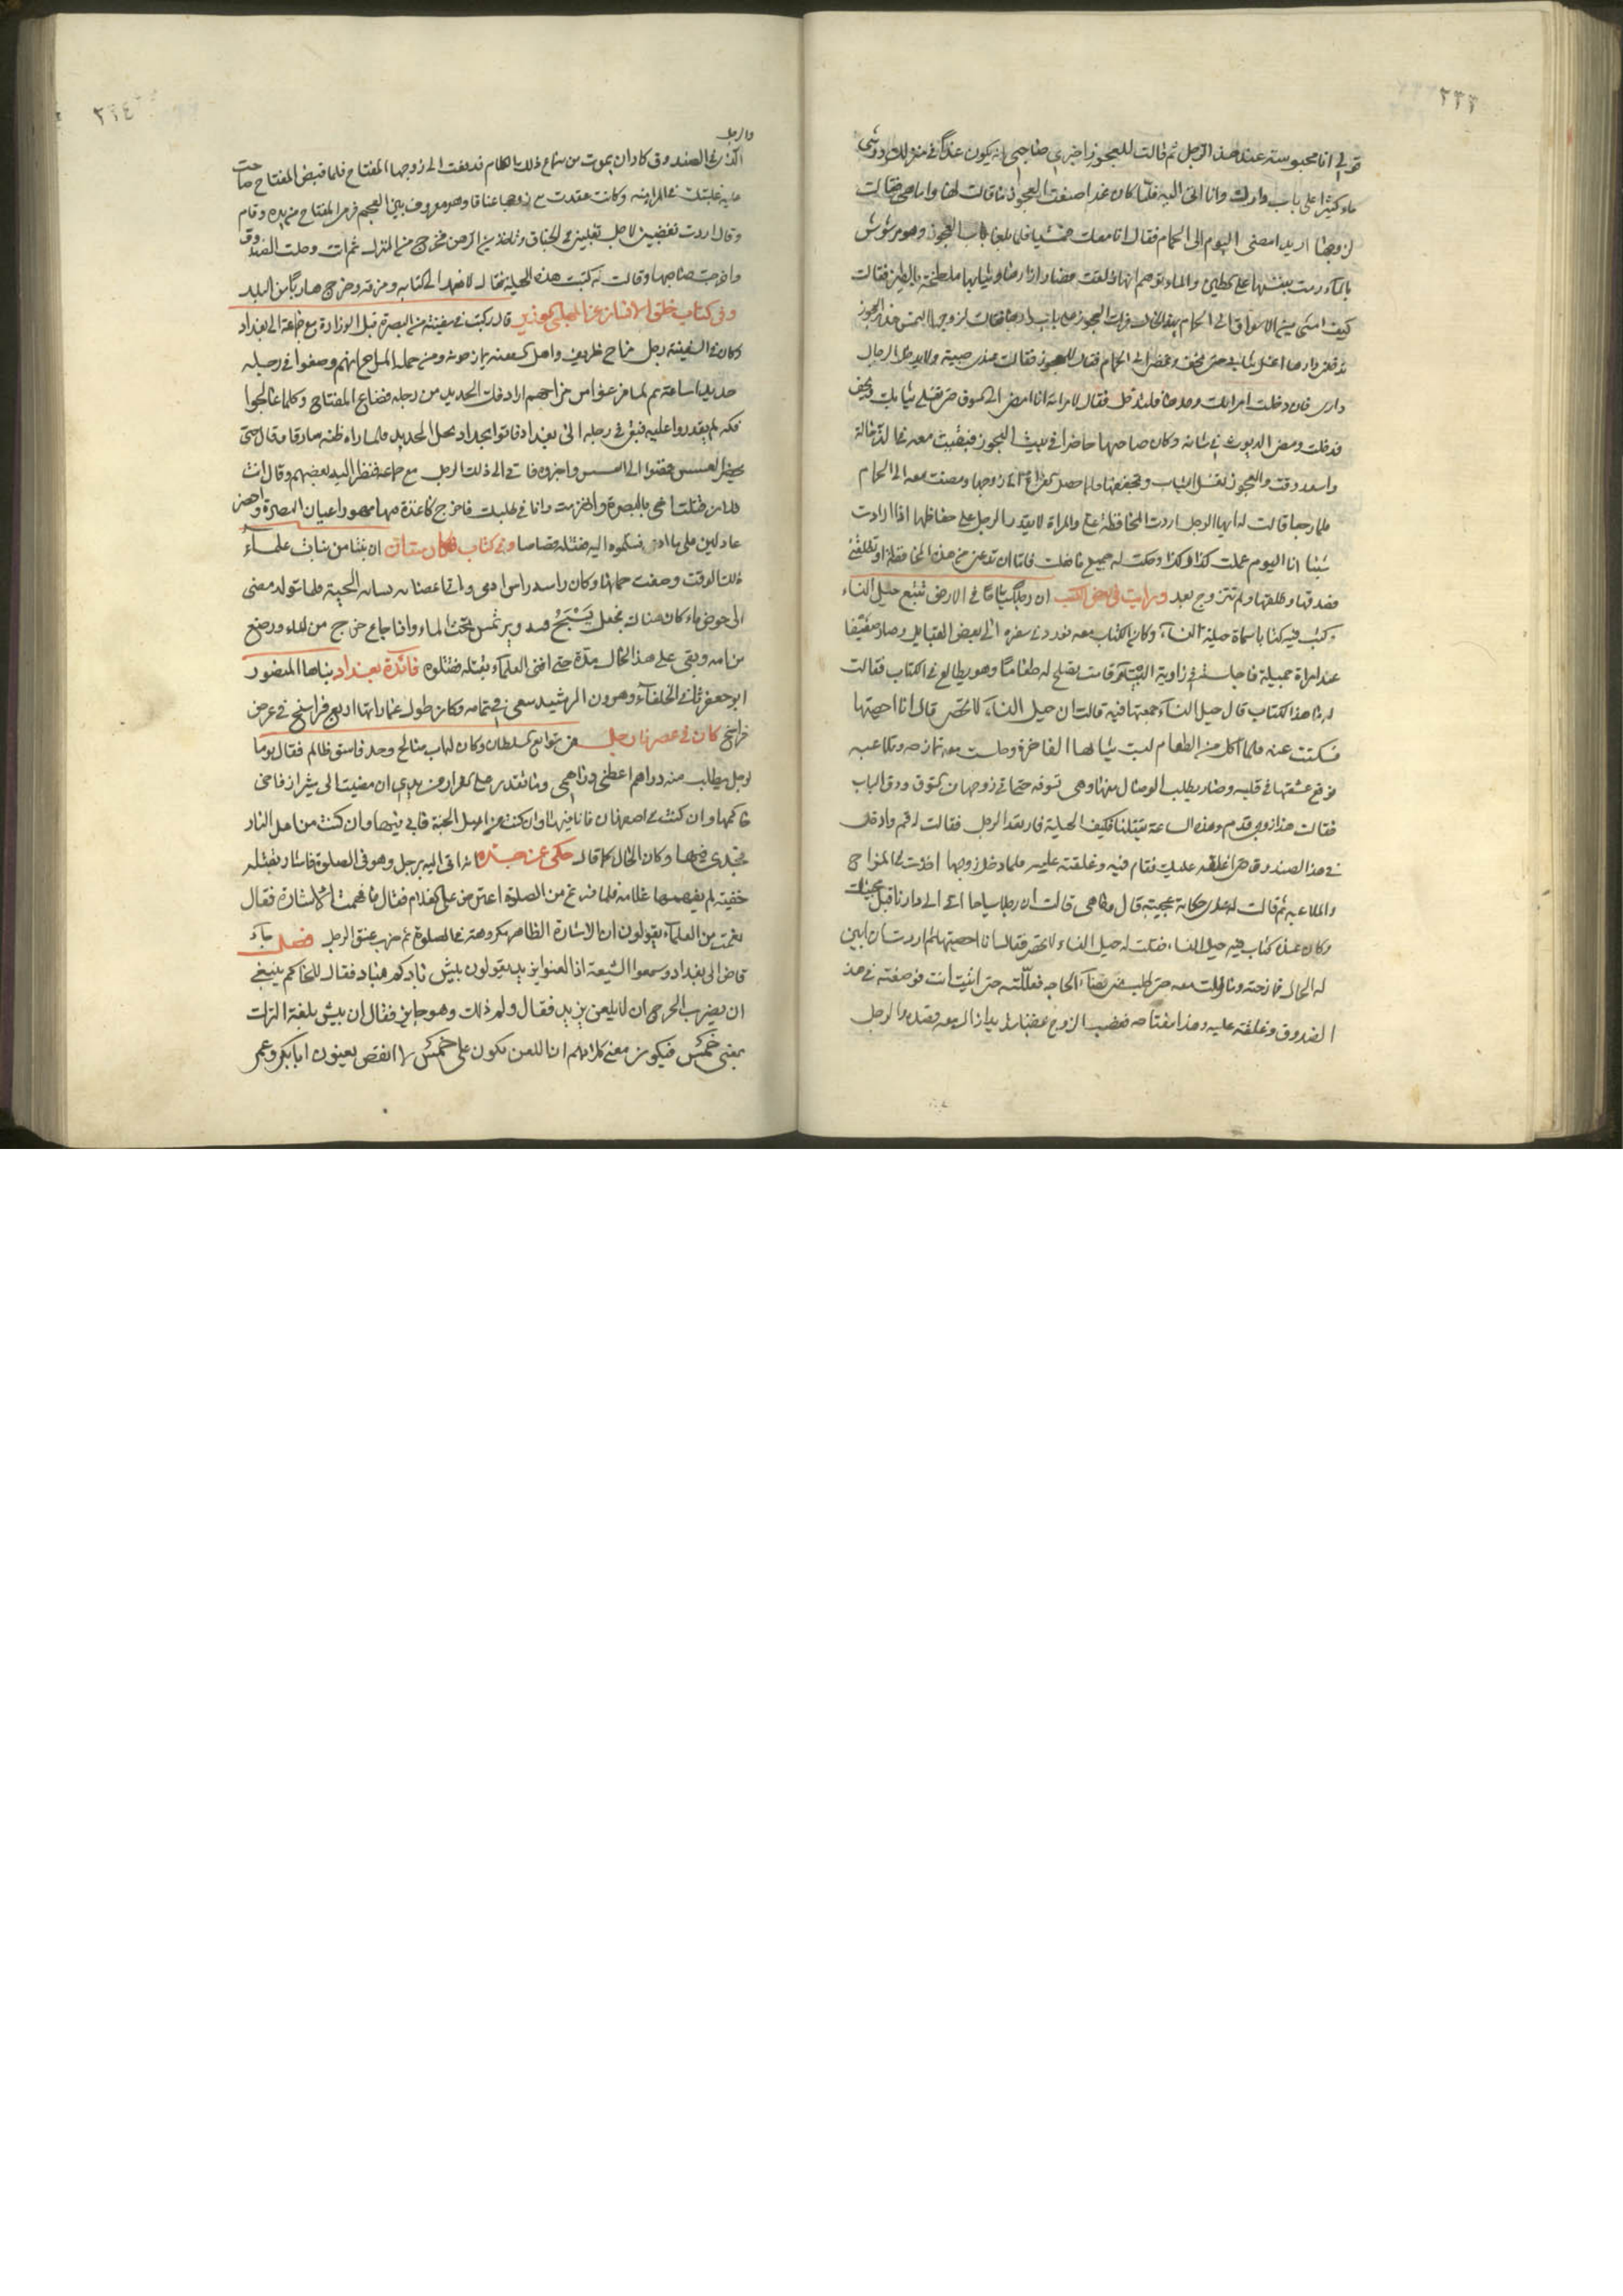 ٢٣٣
قولي انا محبوسة عند هذا الرجل ثم قالت للعجوز اخبري صاحبي انه يكون غدا في منزلك ورشي
ماء كثيرا على باب دارك وانا اتي اليه فلما كان غدا صنعت العجوز ما قالت لها واما هي فقالت
لزوجها اريد امضي اليوم الى الحمام فقال انا معك فمشيا فلما بلغا باب العجوز وهو مرشوش
بالماء رمت بنفسها على الطين والماء توهم انها زلقت فصار ازارها وثيابها ملطخة بالطين فقالت
كيف امشي في الاسواق الى الحمام بهذا الحال فرات العجوز على باب دارها فقالت لزوجها التمس هذه العجوز
ندخل دارها اغسل ثيابي حتى تجف ونمضي الى الحمام فقال للعجوز فقالت عندي صبية ولا يدخل الرجال
داري فان دخلت امراتك وحدها فلتدخل فقال لامراته انا امضي الى السوق حتى تغسلي ثيابك وتجف
فدخلت ومضى الديوث في شانه وكان صاحبها حاضرا في بيت العجوز فبقيت معه في الذ حالة
واسعد وقت والعجوز تغسل الثياب وتجففها فلما حصل الفراغ اتى زوجها ومضت معه الى الحمام
فلما رجعا قالت له ايها الرجل اردت المحافظة علي والمراة لا يقدر الرجل على حفاظها اذا ارادت
شيئا انا اليوم عملت كذا وكذا وحكت له جميع ما فعلت فاما ان تدعني من هذه المحافظة او تطلقني
فصدقها وطلقها ولم تتزوج بعد ورايت في بعض الكتب ان رجلا ساح في الارض تتبع حيل النساء
وكتب فيه كتابا سماه حيلة النساء وكان الكتاب معه فورد في سفره الى بعض القبايل وصار ضيفا
عند امراة جميلة فاجلسته في زاوية البيت وقامت تصلح له طعاما وهو يطالع في الكتاب فقالت
له ما هذا الكتاب قال حيل النساء جمعتها فيه قالت ان حيل النساء لا تحصى قال انا احصيتها
فسكتت عنه فلما اكل من الطعام لبست ثيابها الفاخرة وجلست معه تمازحه وتلاعبه
فوقع عشقها في قلبه وصار يطلب الوصال منها وهي تسوفه حتى اتى زوجها من السوق ودق الباب
فقالت هذا زوجي قدم وهذه الساعة يقتلنا فكيف الحيلة فارتعد الرجل فقالت له قم وادخل
في هذا الصندوق حتى اغلقه عليك فقام فيه وغلقته عليه فلما دخل زوجها اخذت في المزاح
والملاعبة ثم قالت له عندي حكاية عجيبة قال وما هي قالت ان رجلا سياحا اتى الى دارنا قبل مجيئك
وكان عنده كتاب فيه حيل النساء فقلت له حيل النساء لا تحصى فقال انا احصيتها ثم اردت ان ابين
له الحال فمازحته وتاولت معه حتى طلب مني قضاء الحاجة فعللته حتى اتيت انت فوضعته في هذا
الصندوق وغلقته عليه وهذا مفتاحه فغضب الزوج غضبا شديدا وقصده والرجل
٢٣٤
والرجل
الذي في الصندوق كاد ان يموت من سماع ذلك الكلام فدفعت الى زوجها المفتاح فلما قبض المفتاح صاحت
عليه غلبتك في المراهنة وكانت عقدت مع زوجها عناقا وهو معروف بين العجم فرمى المفتاح من يده وقام
وقال اردت تغضبيني لاجل تغلبيني في الجناق وتاخذين الرهن فخرج من المنزل ثم اتت وحلت الصندوق
واخرجت صاحبها وقالت له كتبت هذه الحيلة فقال لا فعمد الى كتابه ومزقه وخرج هاربا من البلد
وفي كتاب خلق الانسان عن المهلبي الوزير قال ركبت في سفينة من البصرة قبل الوزارة مع جماعة الى بغداد
وكان في السفينة رجل مزاح ظريف واهل السفينة يمازحونه ومن جملة المزاح انهم وضعوا في رجليه
حديدا ساعة ثم لما فرغوا من مزاحهم ارادوا فك الحديد من رجله فضاع المفتاح وكلما عالجوا
فكه لم يقدروا عليه فبقي في رجله الى بغداد فاتوا بحداد يحل الحديد فلما راه ظنه سارقا وقال حتى
يحضر العسس فمضوا الى العسس واخبروه فاتى الى ذلك الرجل مع جماعة فنظر اليه بعضهم وقال انت
فلان قتلت اخي بالبصرة وانهزمت وانا في طلبك فاخرج كاغذة فيها مهور اعيان البصرة واحضر
عادلين على ما ادعى فسلموه اليه فقتله قصاصا وفي كتاب نكارستان ان بنتا من بنات علماء
ذلك الوقت وضعت حملها وكان راسه راس ادمي وباقي اعضائه بسان الحية فلما تولد مضى
الى حوض ماء كان هناك فجعل يسبح فيه ويرتمس تحت الماء واذا جاع خرج من الماء ورضع
من امه وبقي على هذا الحال مدة حتى افتى العلماء بقتله فقتلوه فائدة بغداد بناها المنصور
ابو جعفر ثاني الخلفاء وهرون الرشيد سعى في تمامه وكان طول عماراتها اربع فراسخ في عرض
فراسخ كان في عصرنا رجل من توابع السلطان وكان له اب صالح وجد فاسق ظالم فقال يوما
لرجل يطلب منه دراهم اعطني دراهمي وما تقدر على الفرار من يدي ان مضيت الى شيراز فاخي
حاكمها وان كنت في اصفهان فانا فيها وان كنت من اهل الجنة فابي فيها وان كنت من اهل النار
فجدي فيها وكان الحال كما قال حكي عن جده انه اتي اليه برجل وهو في الصلوة فاشار بقتله
خفية لم يفهمها غلامه فلما فرغ من الصلوة اعترض على الغلام فقال ما فهمت الاشارة فقال
نعم من العلماء يقولون ان الاشارة الظاهرة مكروهة في الصلوة ثم ضرب عنق الرجل فصل جاء
قاض الى بغداد وسمعوا الشيعة اذا لعنوا يزيد يقولون بيش باد كم مباد فقال للحاكم ينبغي
ان يضرب الحرج ان لا يلعن يزيد فقال ولم ذلك وهو جايز فقال ان بيش بلغة الترك
بمعنى خمس فيكون معنى كلامهم ان اللعن يكون على خمس لا انقص يعنون ابا بكر وعمر